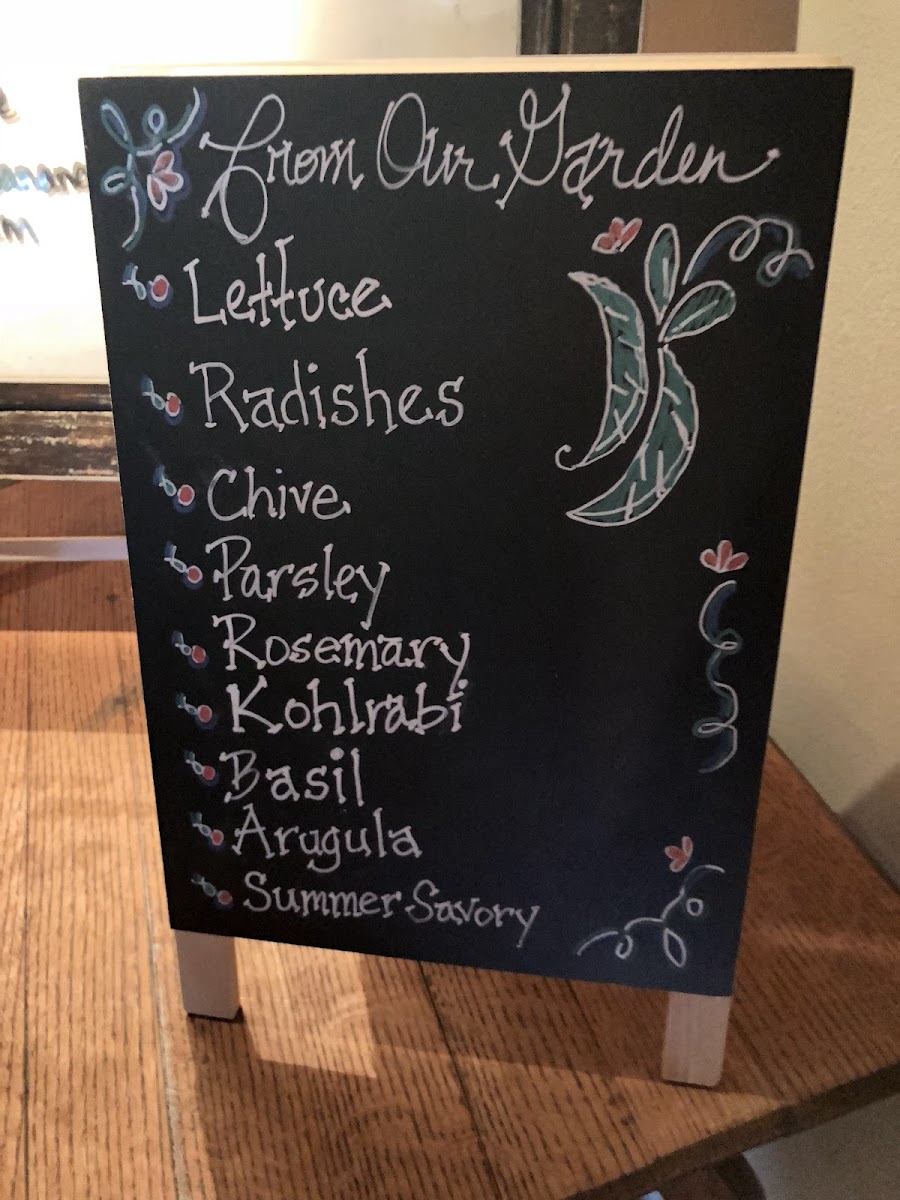 From Our Garden
Lettuce
Radishes
Chive
Parsley
Rosemary
Kohlrabi
Basil
Arugula
Summer Savory